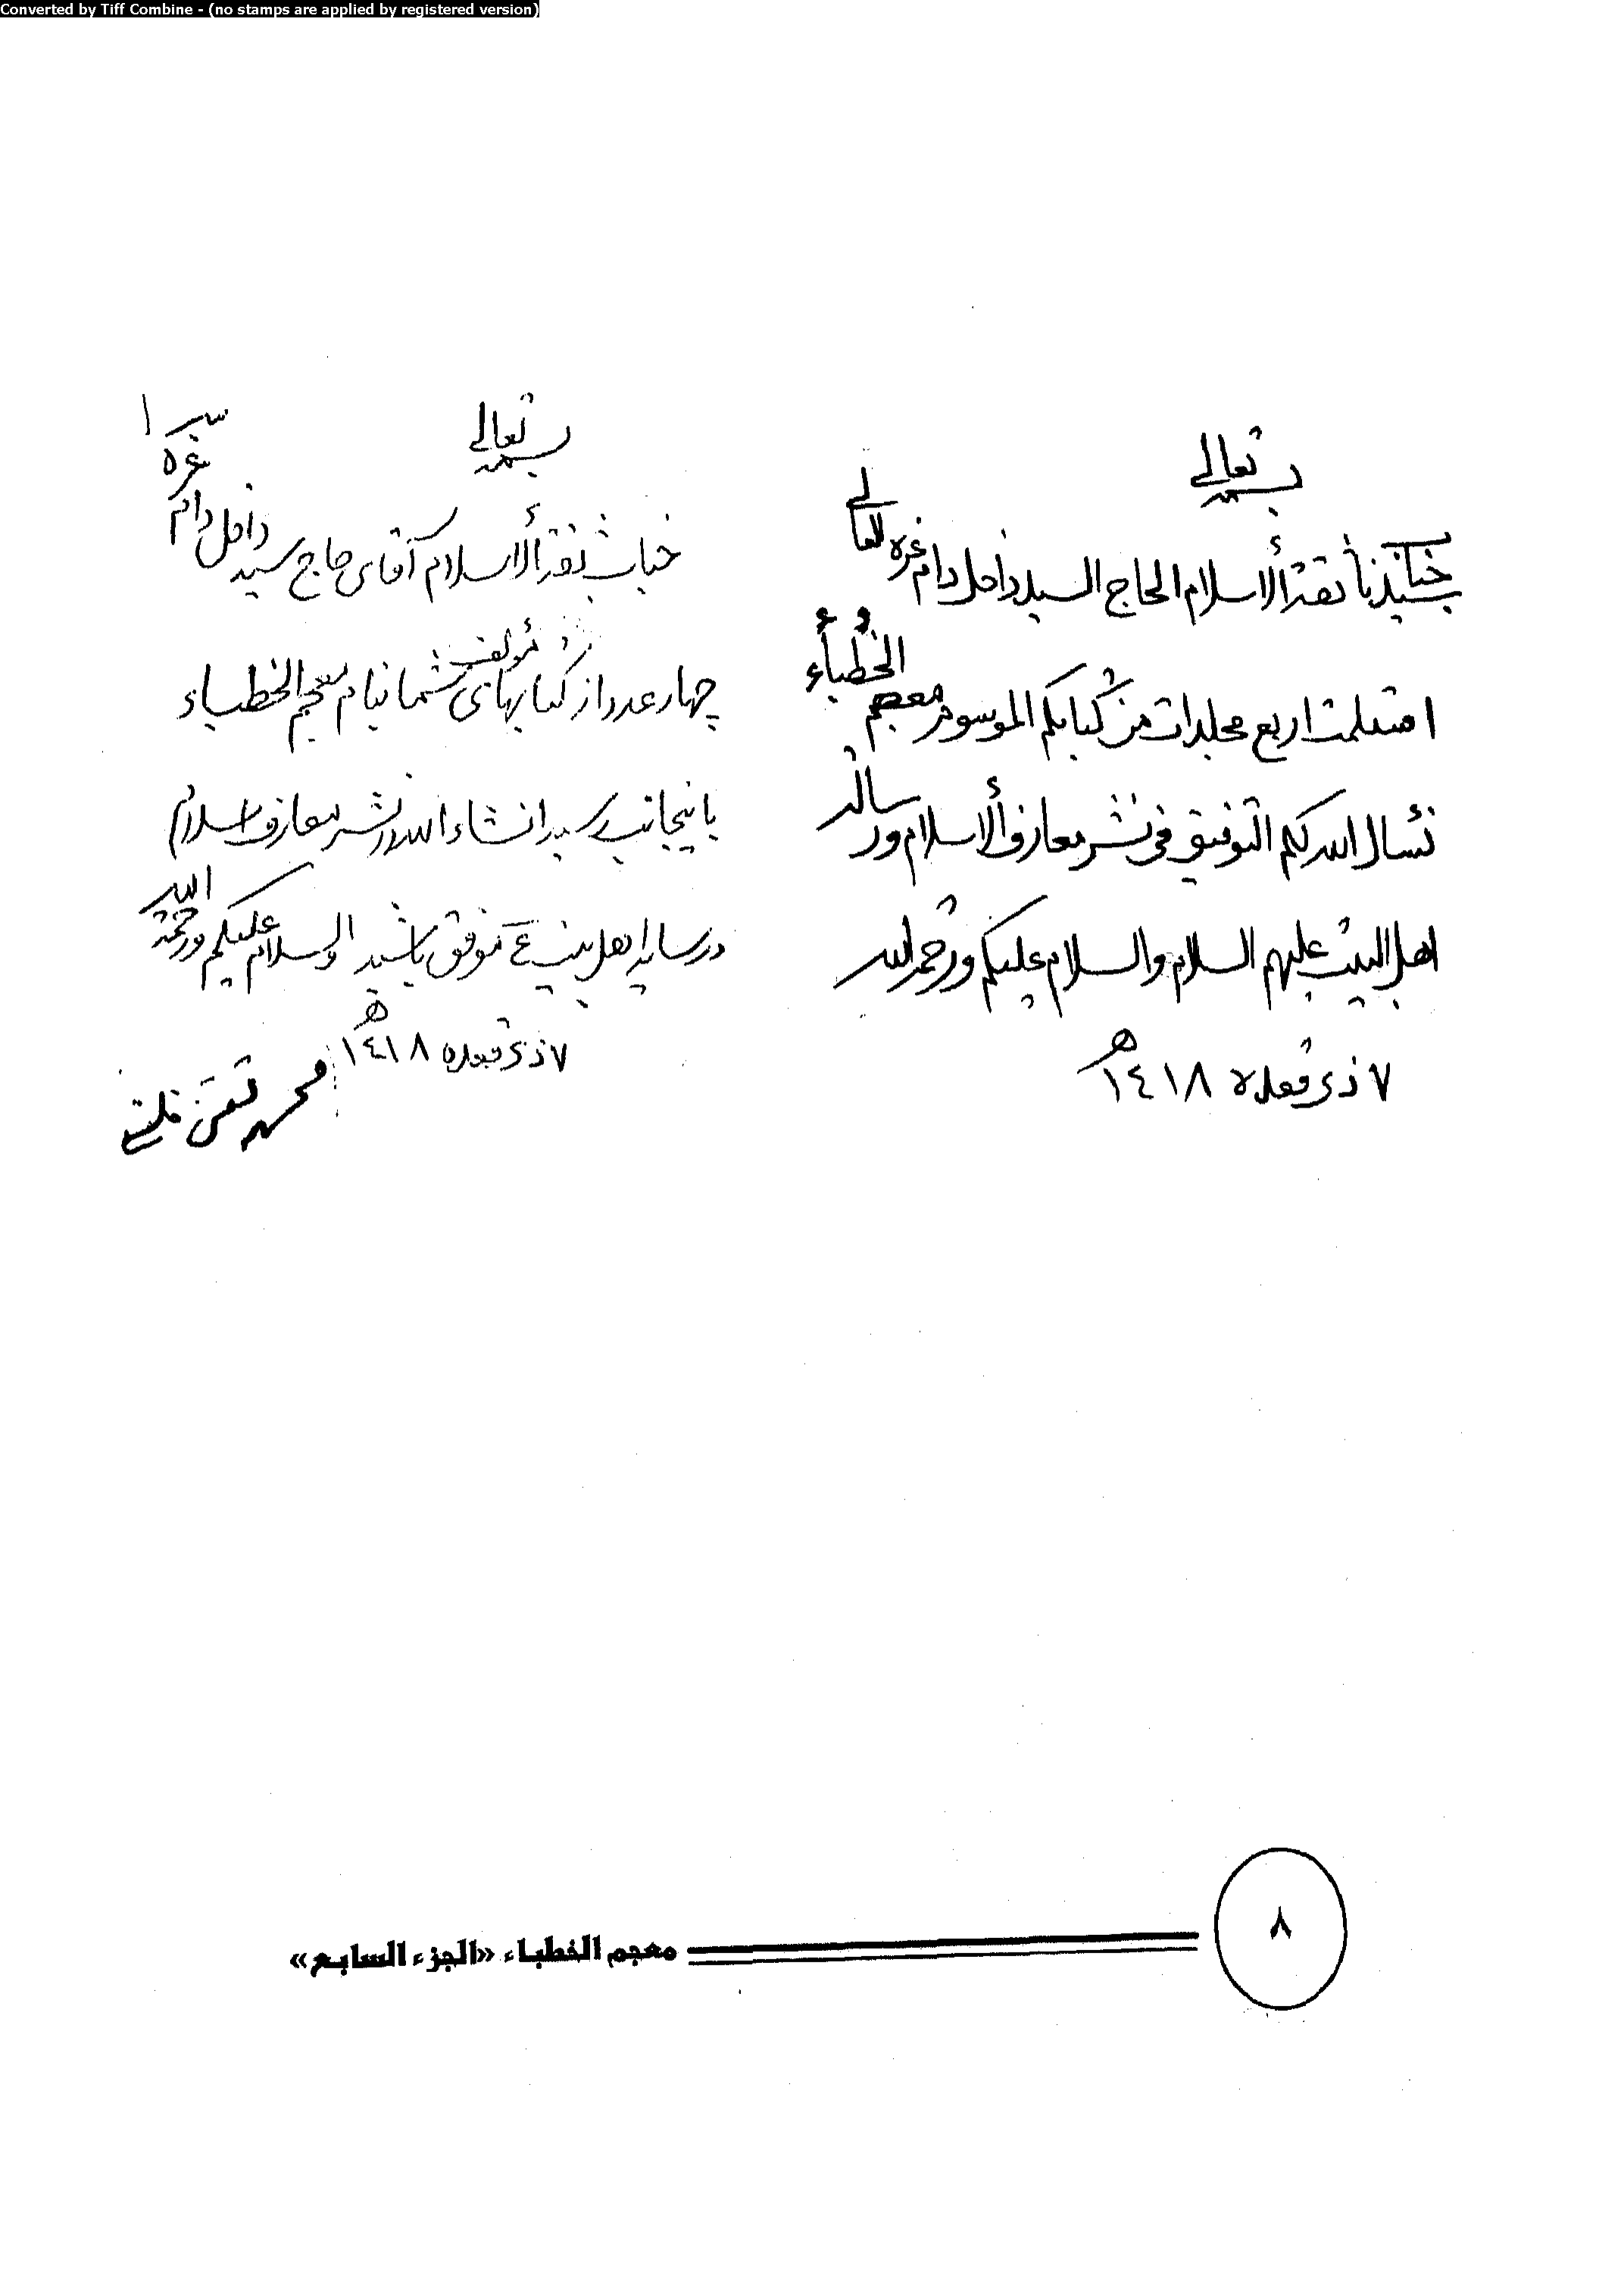 Converted by Tiff Combine - (no stamps are applied by registered version)
بسمه تعالى
ثقة الأسلام الحاج السيد داخل دام عزه العالي
استلمت اربع مجلدات من كتابكم الموسوم معجم الخُطباء
نسأل الله لكم التوفيق في نشر معارف الأسلام ورسالة
اهل البيت عليهم السلام والسلام عليكم ورحمة الله
٧ ذي قعده ١٤١٨ هـ
بسمه تعالى
جناب ثقة الأسلام آقاى حاج سيد داخل دام عزه
چهار عدد از كتابهاى مؤلف شما بنام معجم الخطباء
باينجانب رسيد انشاء الله در نشر معارف اسلام
و رسالة اهل بيت ع موفق باشيد والسلام عليكم ورحمة الله
٧ ذى قعده ١٤١٨ هـ
محمد تقى فلسفى
معجم الخطباء «الجزء السابع»
٨